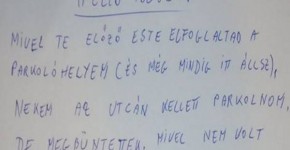 MIVEL TE ELŐZŐ ESTE ELFOGLALTAD A
PARKOLÓHELYEM (ÉS MÉG MINDIG ITT ÁLLSZ),
NEKEM AZ UTCÁN KELLETT PARKOLNOM,
DE MEGBÜNTETTEK, MIVEL NEM VOLT